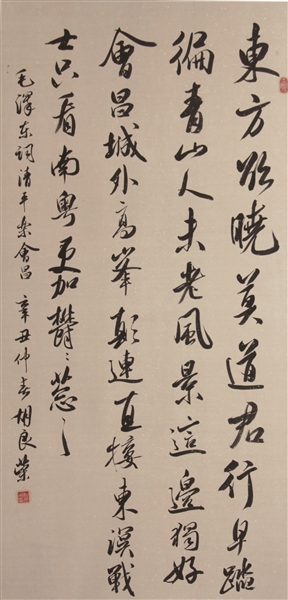 東方欲曉莫道君行早踏
徧青山人未老風景這邊獨好
會昌城外高峯顛連直接東溟戰
士只看南粤更加鬱〻葱〻
毛澤东詞清平樂會昌 辛丑仲春胡良榮